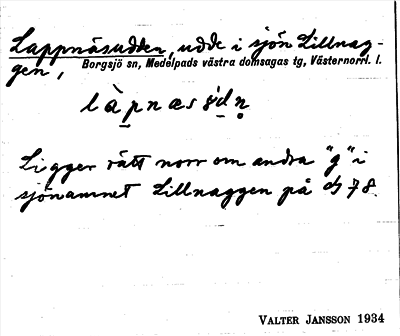 Lappnäsudden, udde i sjön Lillnag-
gen, Borgsjö sn, Medelpads västra domsagas tg, Västernorrl. l.
Ligger rätt norr om andra "g" i
sjönamnet Lillnaggen på 78.
VALTER JANSSON 1934